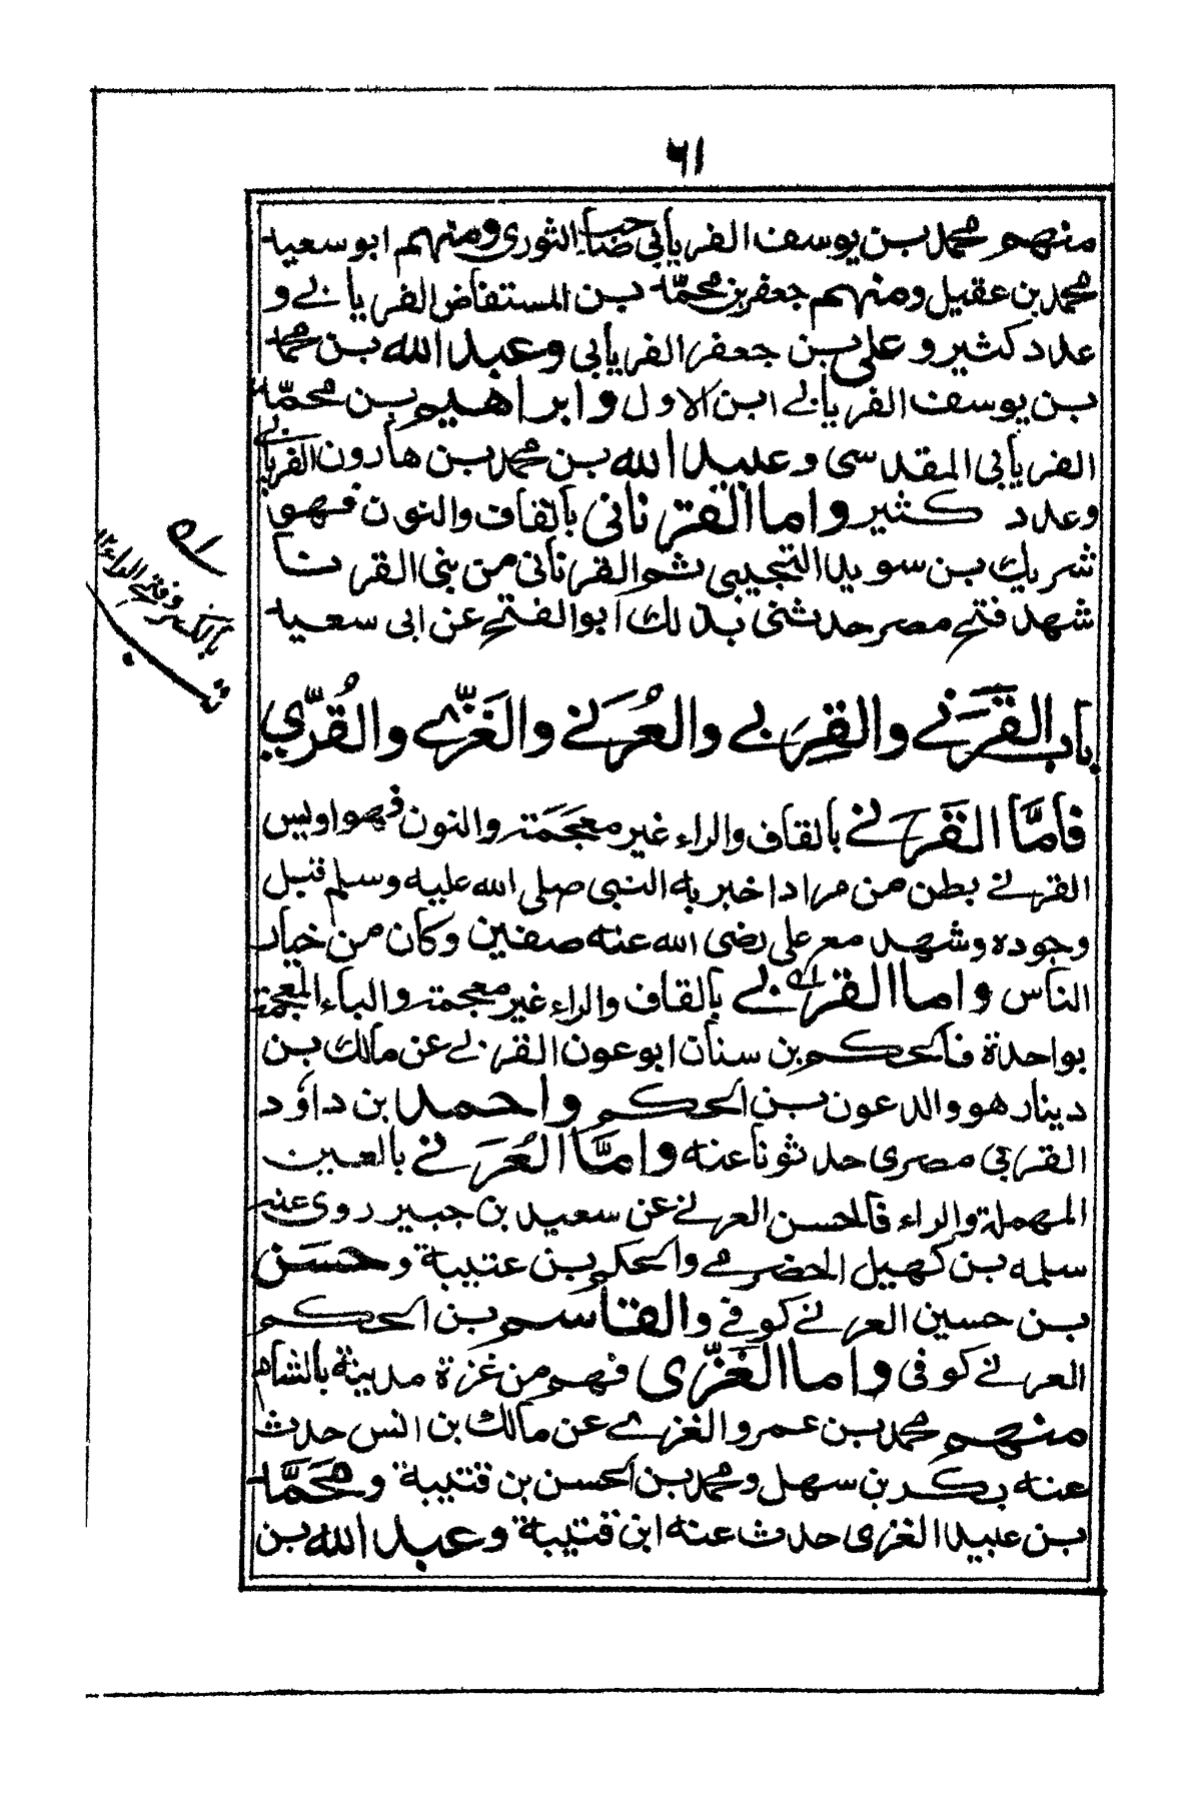 ٦١
منهم محمد بن يوسف الفريابي صاحب الثوري ومنهم ابو سعيد
محمد بن عقيل ومنهم جعفر بن محمّد بن المستفاض الفريابي و
عدد كثير و علي بن جعفر الفريابي وعبد الله بن محمد
بن يوسف الفريابي ابن الاول وابراهيم بن محمّد
الفريابي المقدسي وعبيد الله بن محمد بن هارون الفريابي
وعدد كثير واما القرناني بالقاف والنون فهو
شريك بن سويد التجيبي ثم القرناني من بني القرنا
شهد فتح مصر حدثني بذلك ابو الفتح عن ابي سعيد
باب القَرَني والقِرَبي والعُرَني والغَزّي والقُرّي
فامَّا القَرَني بالقاف والراء غير معجمة والنون فهو اويس
القرني بطن من مراد اخبر به النبي صلى الله عليه وسلم قبل
وجوده وشهد مع علي رضي الله عنه صفين وكان من خيار
الناس واما القربي بالقاف والراء غير معجمة والباء المعجمة
بواحدة فالحكم بن سنان ابو عون القربي عن مالك بن
دينار هو والد عون بن الحكم واحمد بن داود
القربي مصري حدثونا عنه وامَّا العُرَني بالعين
المهملة والراء فالحسن العرني عن سعيد بن جبير روى عنه
سلمه بن كهيل الحضرمي والحكم بن عتيبة وحسن
بن حسين العرني كوفي والقاسم بن الحكم
العرني كوفي واما الغَزّي فهم من غزة مدينة بالشام
منهم محمد بن عمرو الغزي عن مالك بن انس حدث
عنه بكر بن سهل ومحمد بن الحسن بن قتيبة ومحَمَّد
بن عبيد الغزي حدث عنه ابن قتيبة وعبد الله بن
بالكسر وفتح الراء ١٢